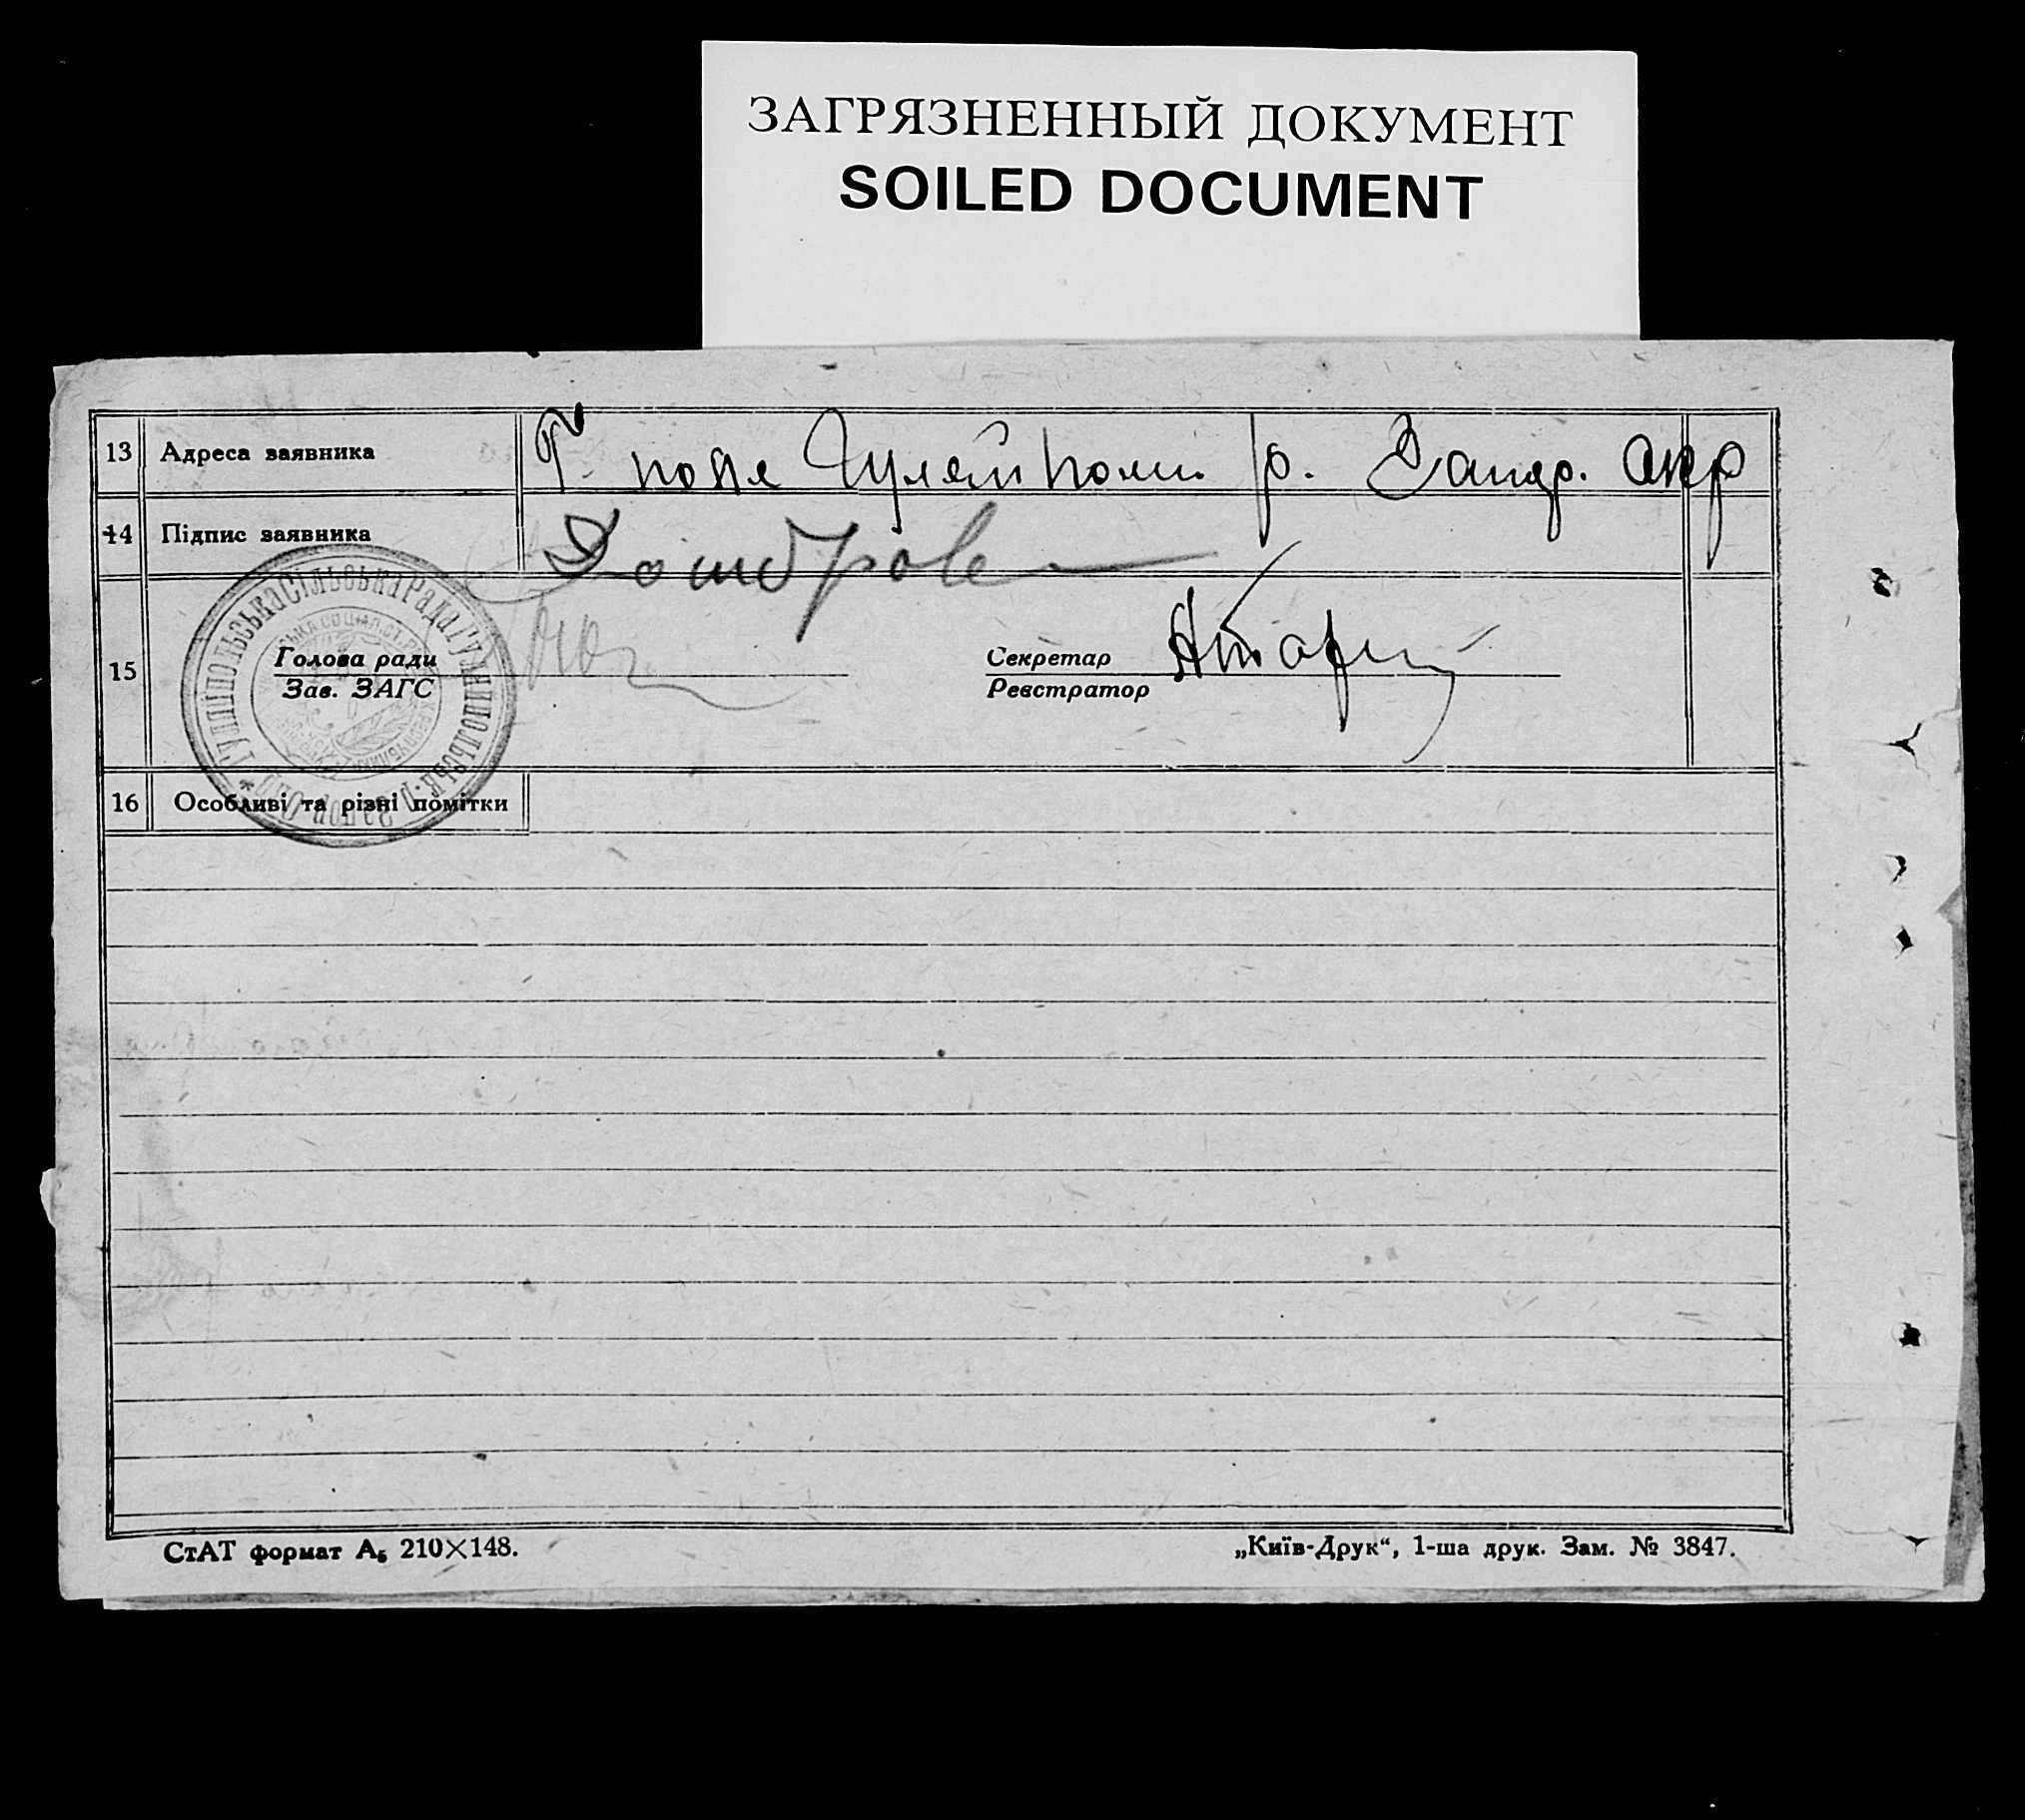 ЗАГРЯЗНЕННЫЙ ДОКУМЕНТ
SOILED DOCUMENT
13 Адреса заявника Г. поле Гуляйполь р. Запор.
14 Підпис заявника
15 Голова ради
Зав. ЗАГС
Секретар
Реєстратор
Гуляйпольська Сільська Рада Гуляйпольськ.
16 Особливі та різні помітки
СтАТ формат А₅ 210×148.
„Київ-Друк“, 1-ша друк. Зам. № 3847.